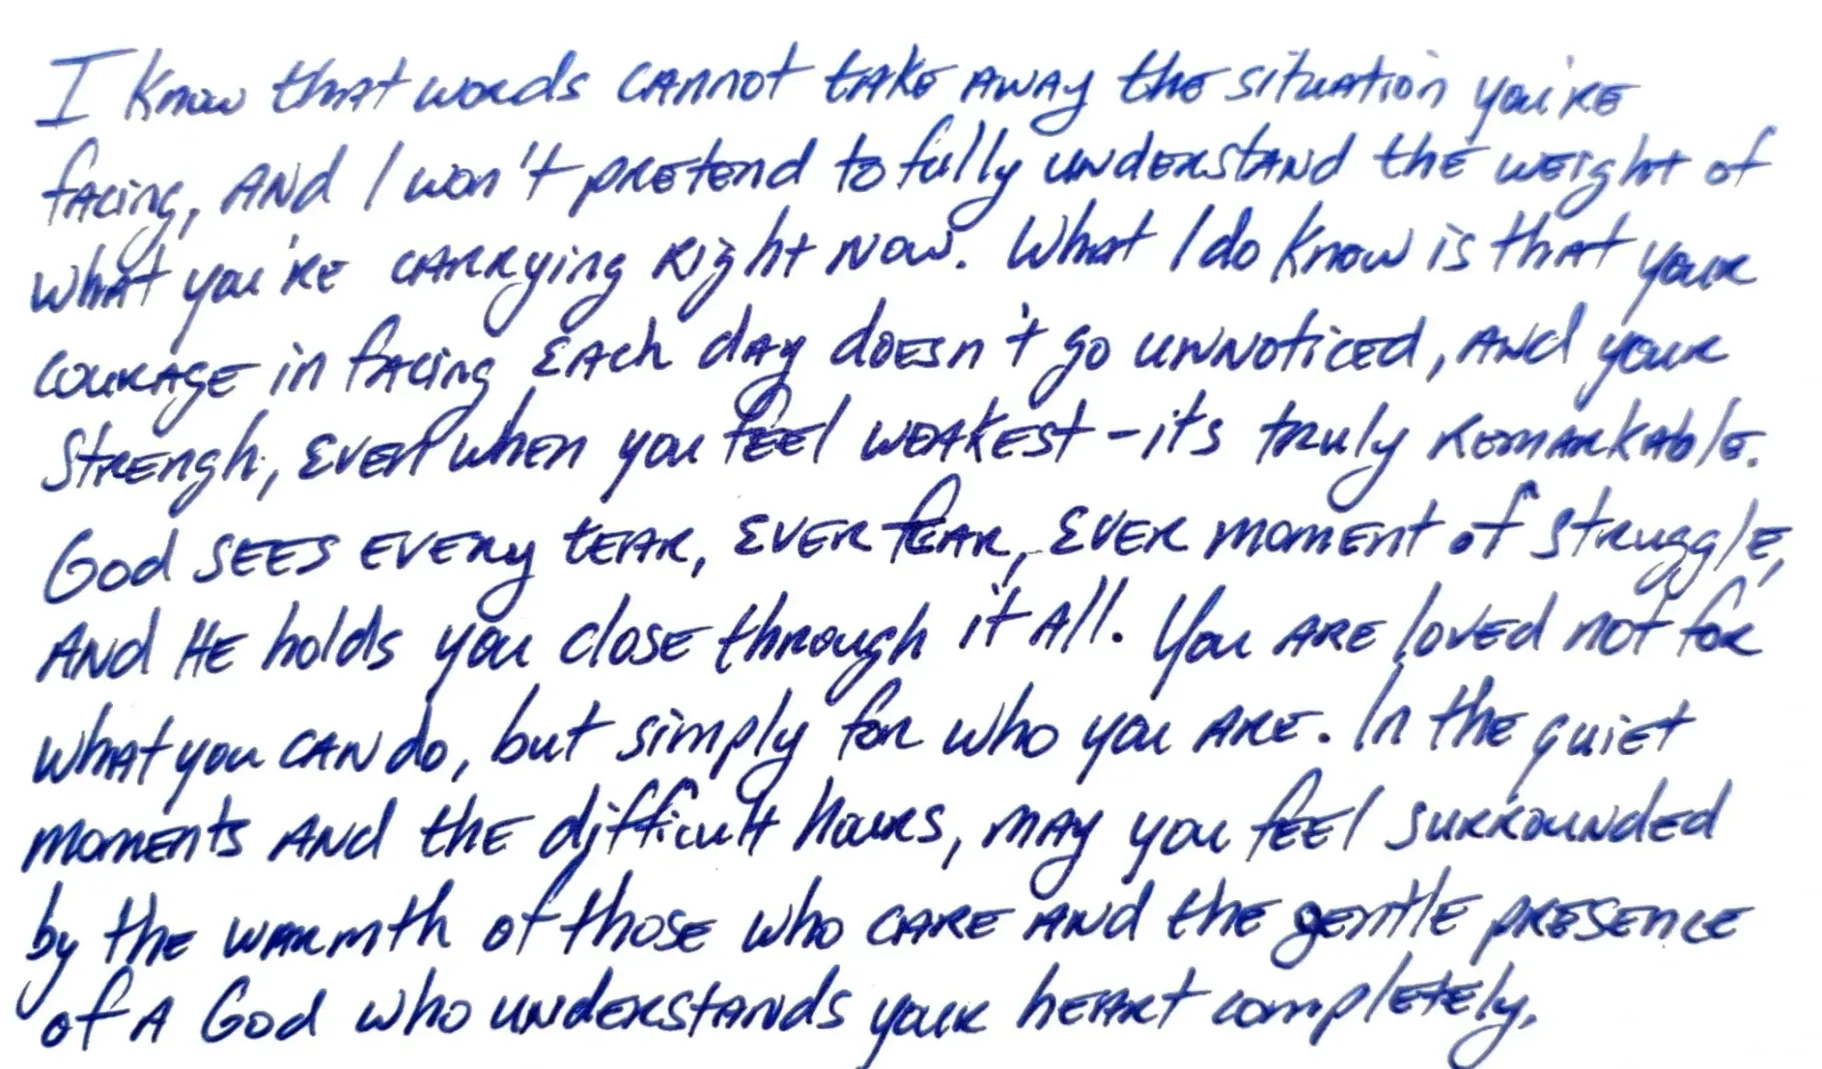 I know that words cannot take away the situation you're
facing, and I won't pretend to fully understand the weight of
what you're carrying right now. What I do know is that your
courage in facing each day doesn't go unnoticed, and your
strengh, even when you feel weakest - its truly remarkable.
God sees every tear, ever fear, ever moment of struggle,
and He holds you close through it all. You are loved not for
what you can do, but simply for who you are. In the quiet
moments and the difficult hours, may you feel surrounded
by the warmth of those who care and the gentle presence
of a God who understands your heart completely.